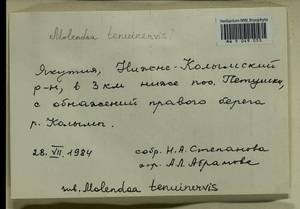 Herbarium MW, Bryophyta
Molendoa tenuinervis?
Якутия, Нижне-Колымский
р-н, в 3 км ниже пос. Петушки,
с обнажений правого берега
р. Колымы.
28. VII. 1984 собр. Н.А. Степанова
опр. А.Л. Абрамова
Molendoa tenuinervis